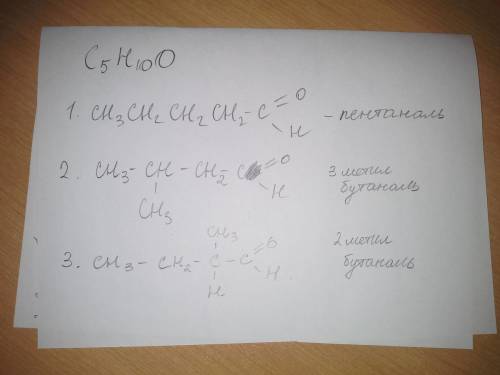 C₅H₁₀O
1. CH₃CH₂CH₂CH₂-C=O
H
- пентаналь
2. CH₃-CH-CH₂-C=O
H
CH₃
3 метил
бутаналь
CH₃
3. CH₃-CH₂-C-C=O
H
H
2 метил
бутаналь